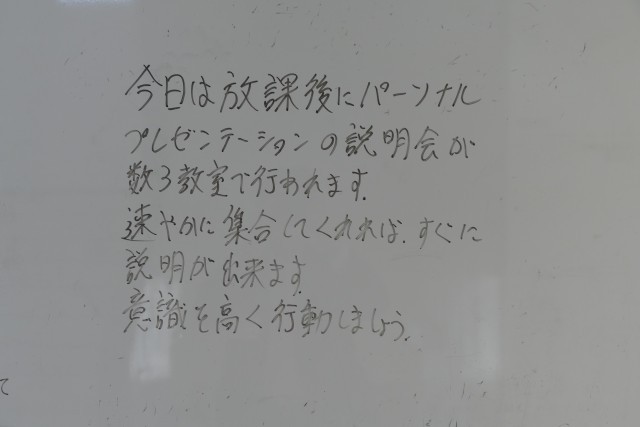 今日は放課後にパーソナル
プレゼンテーションの説明会が
数3教室で行われます.
速やかに集合してくれれば.すぐに
説明が出来ます
意識を高く行動しましょう.
て